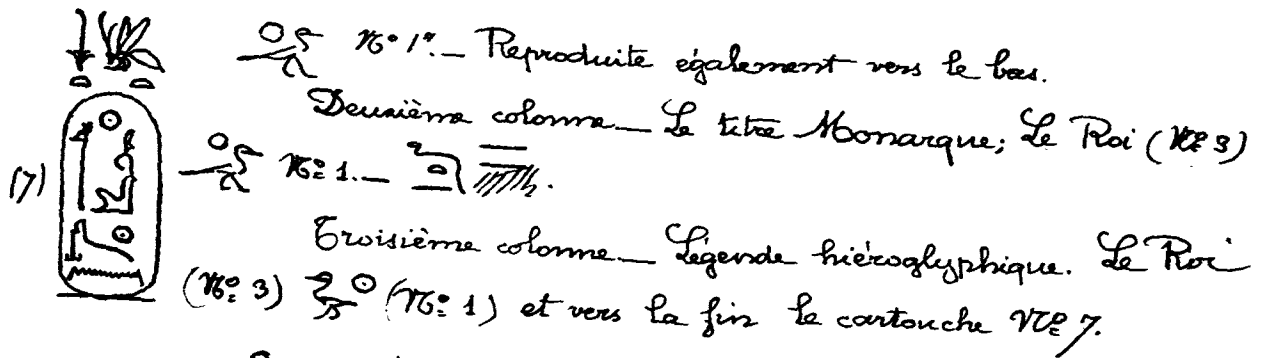 Nº 1er._ Reproduite également vers le bas.
Deuxième colonne._ Le titre Monarque; Le Roi (Nº 3)
(7) Nº 1._
Troisième colonne._ Légende hiéroglyphique. Le Roi
(Nº 3) (Nº 1) et vers la fin le cartouche Nº 7.